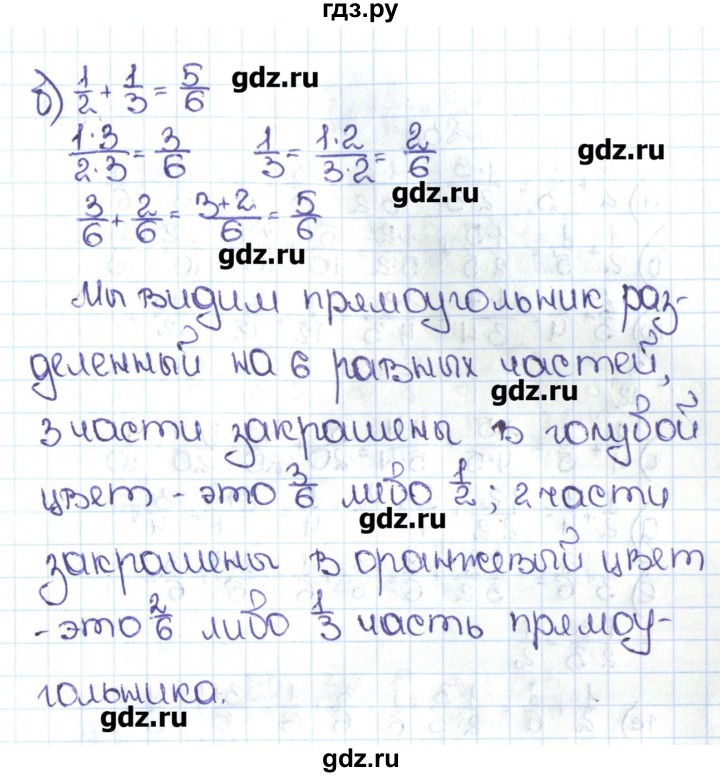 гдз.ру
б) 1/2 + 1/3 = 5/6 gdz.ru
1·3/2·3 = 3/6 1/3 = 1·2/3·2 = 2/6 gdz.ru
gdz.ru
3/6 + 2/6 = 3+2/6 = 5/6
gdz.ru
Мы видим прямоугольник раз-
деленный на 6 равных частей,
gdz.ru
3 части закрашены в голубой
цвет - это 3/6 либо 1/2; 2 части
gdz.ru
закрашены в оранжевый цвет
- это 2/6 либо 1/3 часть прямоу-
гольника.
gdz.ru
gdz.ru